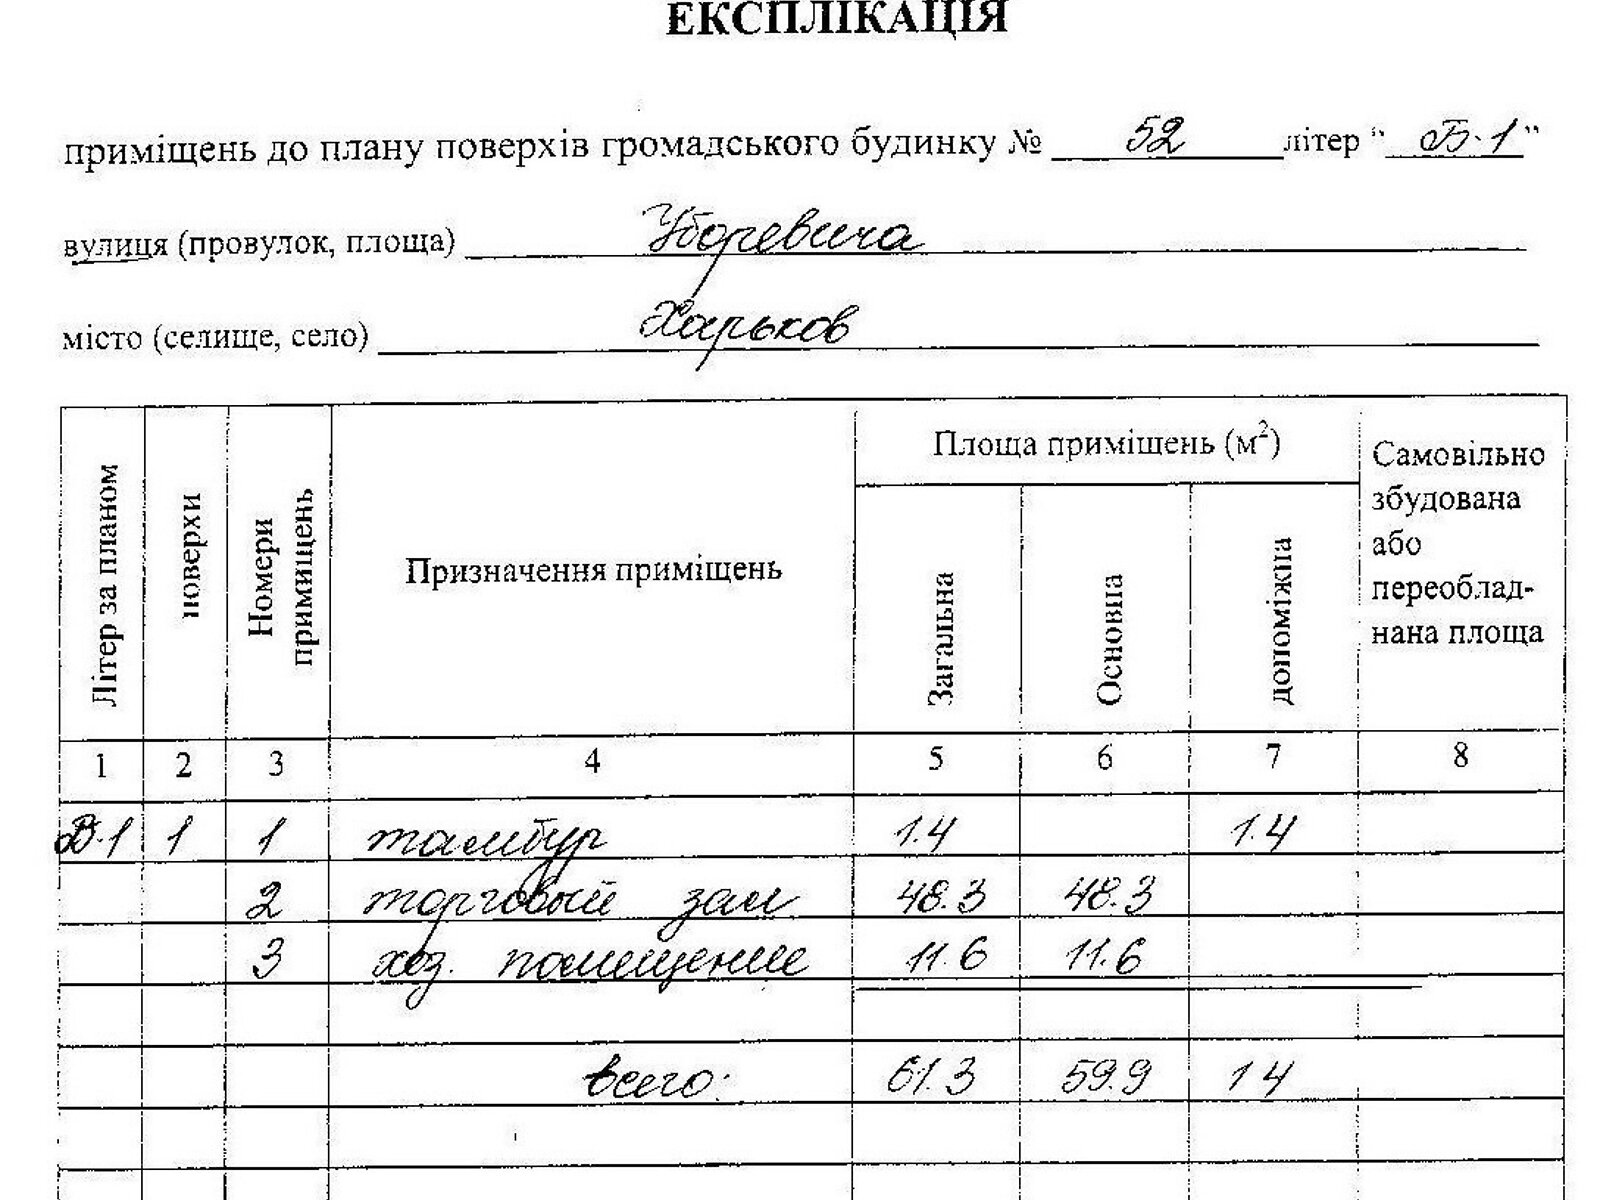 ЕКСПЛІКАЦІЯ
приміщень до плану поверхів громадського будинку № 52 літер “ Б-1 ”
вулиця (провулок, площа) Уборевича
місто (селище, село) Харьков
Літер за планом
поверхи
Номери примищень
Призначення приміщень
Площа приміщень (м²)
Загальна
Основна
допоміжна
Самовільно
збудована
або
переоблад-
нана площа
1 2 3 4 5 6 7 8
1 1 тамбур 1.4 1.4
2 торговый зал 48.3 48.3
3 хоз. помещение 11.6 11.6
всего: 61.3 59.9 1 4